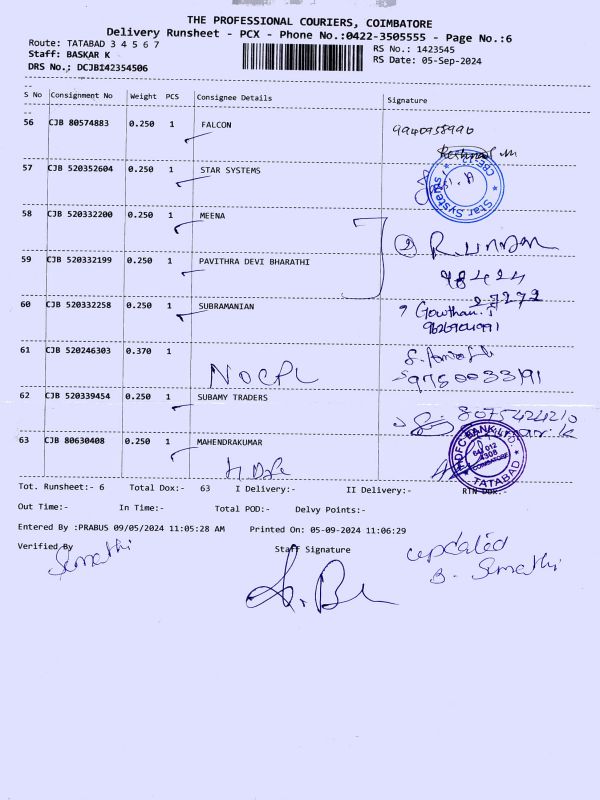 THE PROFESSIONAL COURIERS, COIMBATORE
Delivery Runsheet - PCX - Phone No.:0422-3505555 - Page No.:6
Route: TATABAD 3 4 5 6 7
Staff: BASKAR K
DRS No.: DCJB142354506
RS No.: 1423545
RS Date: 05-Sep-2024
S No Consignment No Weight PCS Consignee Details Signature
56 CJB 80574883 0.250 1 FALCON
9940958990
57 CJB 520352604 0.250 1 STAR SYSTEMS
Star Systems
58 CJB 520332200 0.250 1 MEENA
59 CJB 520332199 0.250 1 PAVITHRA DEVI BHARATHI
98424
27272
60 CJB 520332258 0.250 1 SUBRAMANIAN
Gowtham.
9626904991
61 CJB 520246303 0.370 1
NOCPL
9750033191
62 CJB 520339454 0.250 1 SUBAMY TRADERS
8075424210
63 CJB 80630408 0.250 1 MAHENDRAKUMAR
HDFC BANK LTD.
641 012
4308
COIMBATORE
TATABAD
Tot. Runsheet:- 6 Total Dox:- 63 I Delivery:- II Delivery:- RTN Dox:-
Out Time:- In Time:- Total POD:- Delvy Points:-
Entered By :PRABUS 09/05/2024 11:05:28 AM Printed On: 05-09-2024 11:06:29
Verified By
Semathi
Staff Signature
updated
B. Semathi